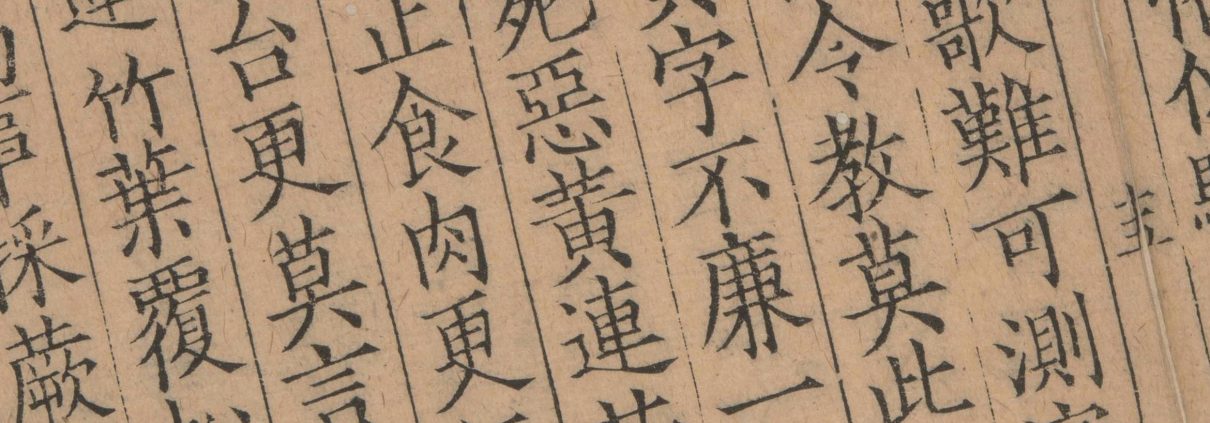 歌難可測
令教莫此
字不廉一
死惡黃連
止食肉更
台更莫言
竹葉覆
採蕨